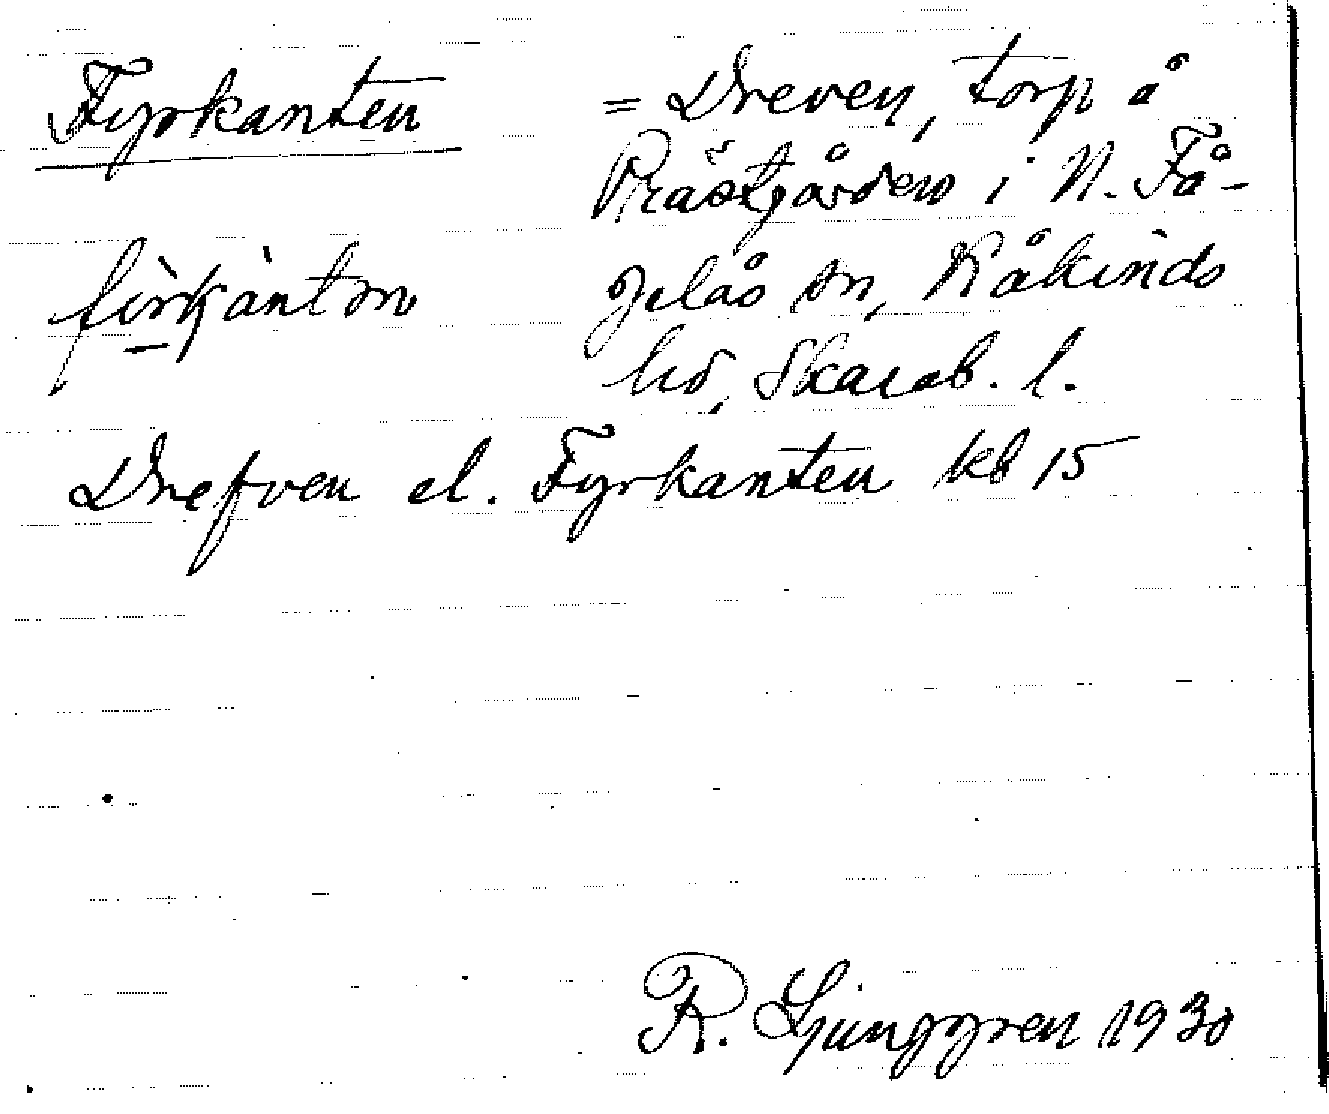 Fyrkanten = Dreven, torp å
Prästgården i N. Få-
gelås sn, Kåkinds
hd, Skarab. l.
fi̇̀rkàntən
Drefven el. Fyrkanten kb 15
R. Ljunggren 1930